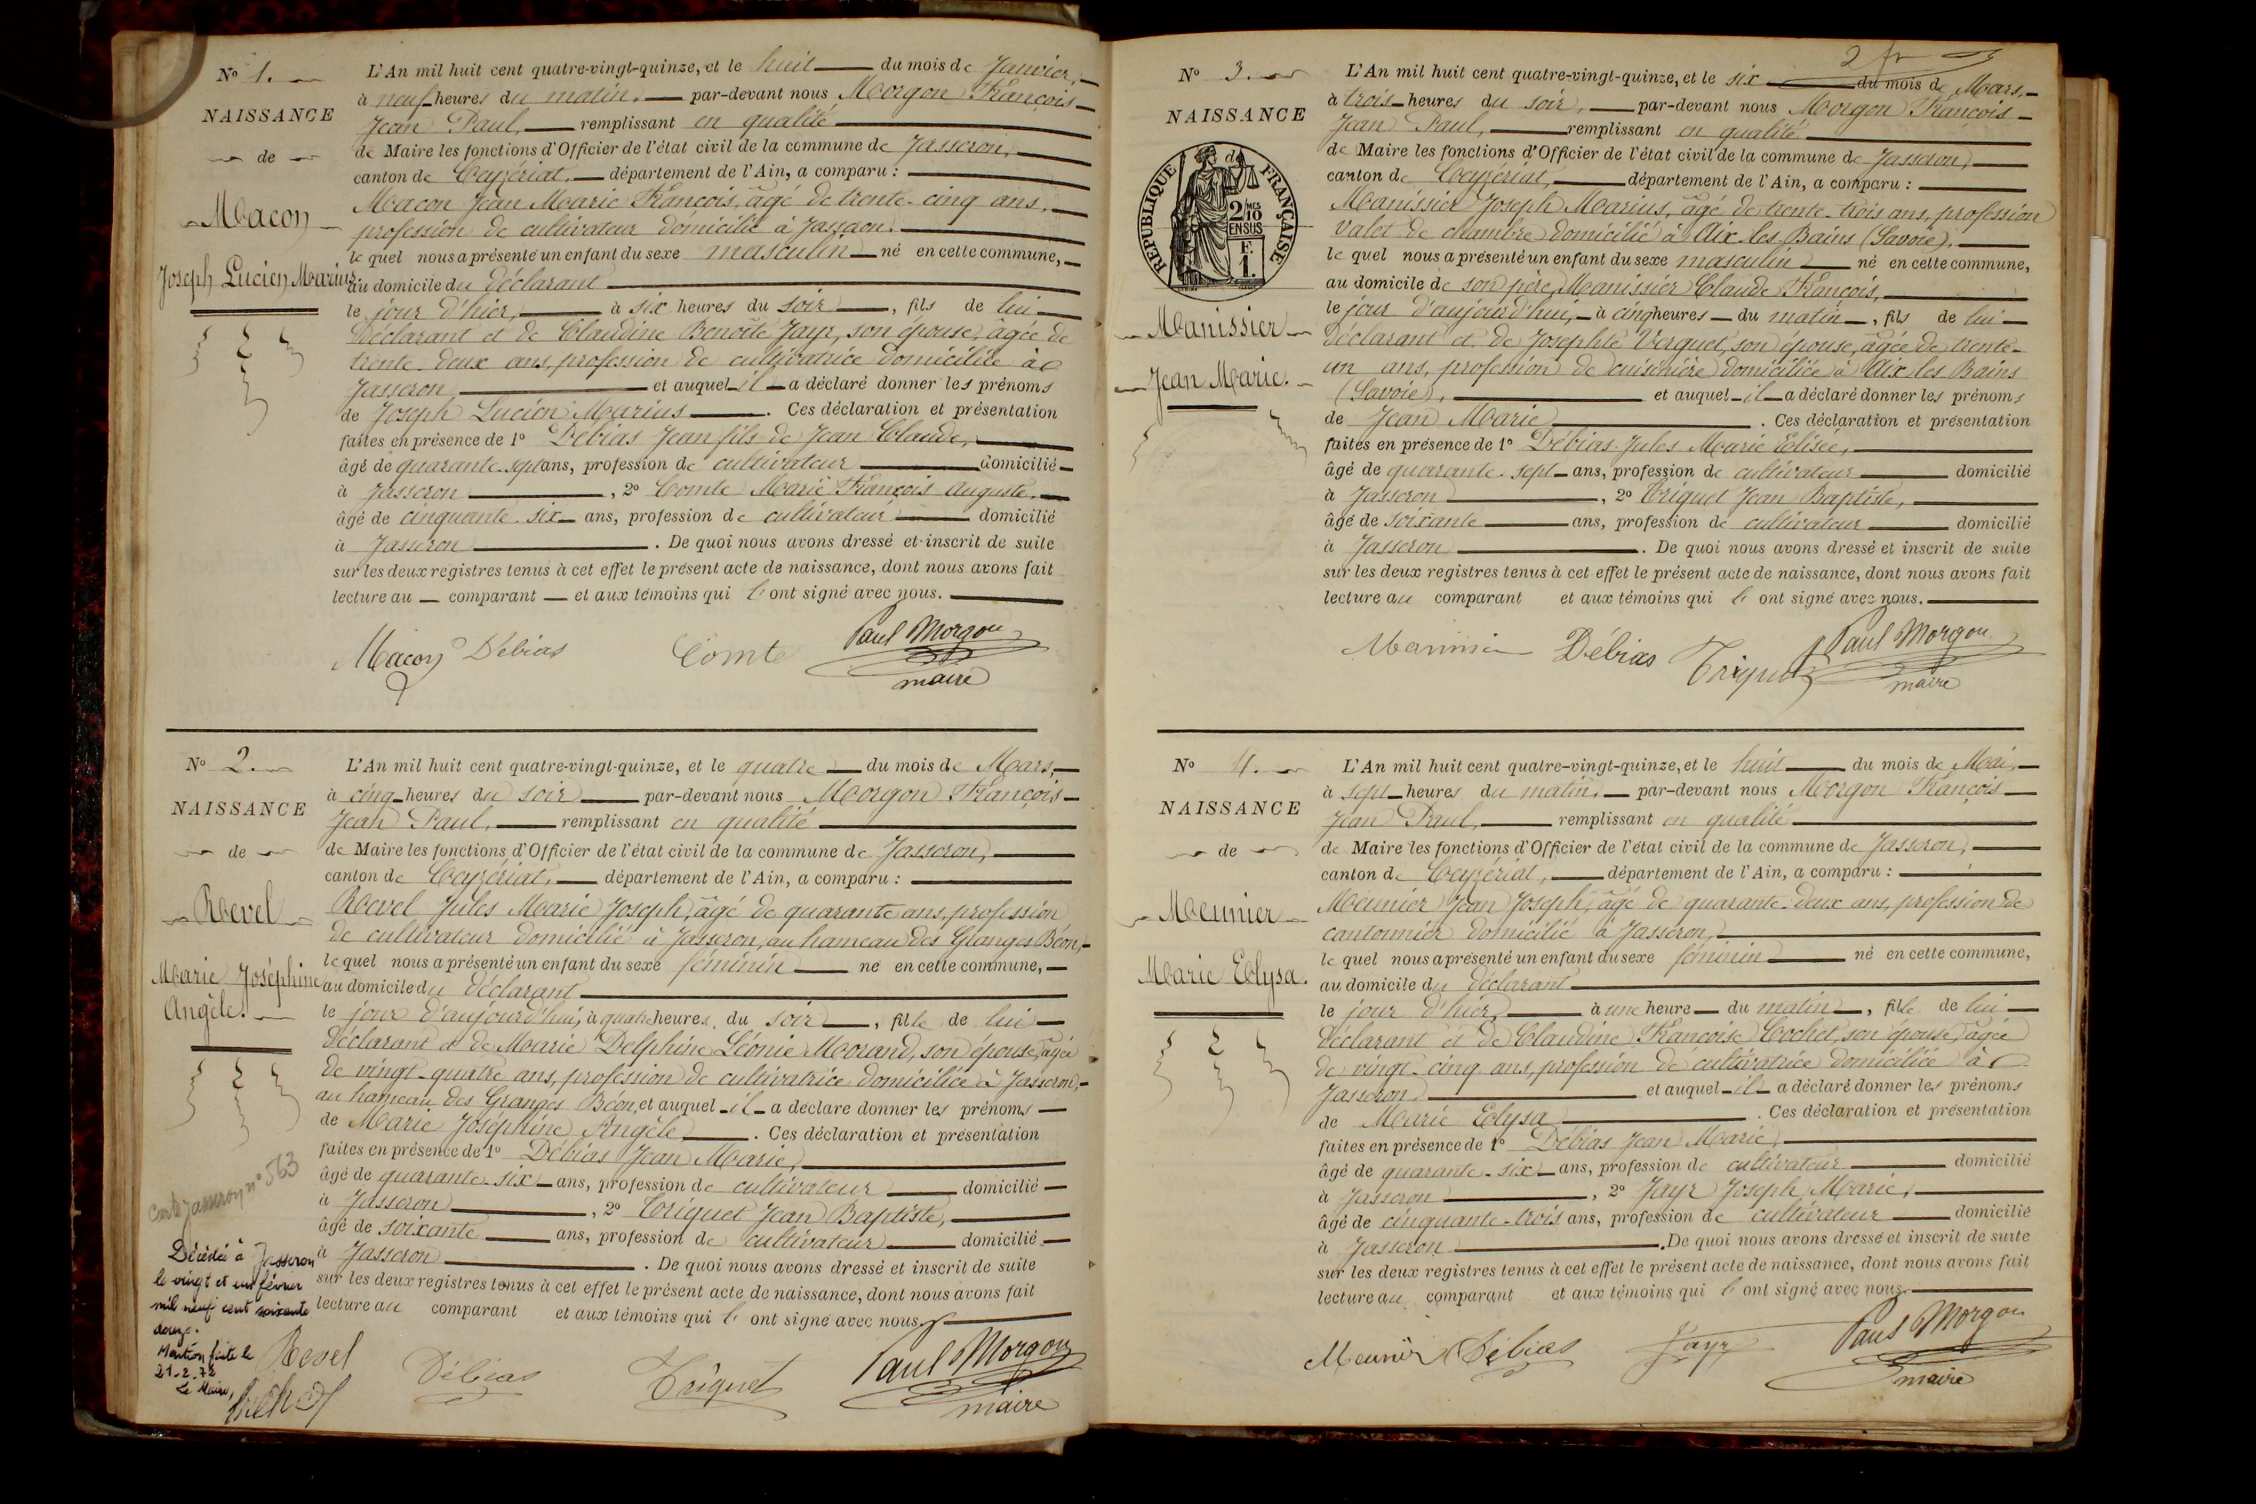 N° 1.
NAISSANCE
de
Macon
Joseph Lucien Marius
L'An mil huit cent quatre-vingt-quinze, et le huit du mois de Janvier,
à neuf heures du matin. par-devant nous Morgon François
Jean Paul, remplissant en qualité
de Maire les fonctions d'Officier de l'état civil de la commune de Jasseron,
canton de Ceyzériat, département de l'Ain, a comparu :
Macon Jean Marie François, âgé de trente-cinq ans,
profession de cultivateur domicilié à Jasseron.
le quel nous a présenté un enfant du sexe masculin né en cette commune,
au domicile du déclarant
le jour d'hier, à six heures du soir, fils de lui
déclarant et de Claudine Benoîte Jayr, son épouse, âgée de
trente-deux ans, profession de cultivatrice domiciliée à
Jasseron et auquel il a déclaré donner les prénoms
de Joseph Lucien Marius. Ces déclaration et présentation
faites en présence de 1° Débias Jean fils de Jean Claude,
âgé de quarante-sept ans, profession de cultivateur domicilié
à Jasseron, 2° Comte Marie François Auguste,
âgé de cinquante-six ans, profession de cultivateur domicilié
à Jasseron. De quoi nous avons dressé et inscrit de suite
sur les deux registres tenus à cet effet le présent acte de naissance, dont nous avons fait
lecture au comparant et aux témoins qui l'ont signé avec nous.
Macon Débias Comte Paul Morgon
maire
N° 2.
NAISSANCE
de
Revel
Marie Joséphine
Angèle.
L'An mil huit cent quatre-vingt-quinze, et le quatre du mois de Mars,
à cinq heures du soir par-devant nous Morgon François
Jean Paul, remplissant en qualité
de Maire les fonctions d'Officier de l'état civil de la commune de Jasseron,
canton de Ceyzériat, département de l'Ain, a comparu :
Revel Jules Marie Joseph, âgé de quarante ans, profession
de cultivateur domicilié à Jasseron, au hameau des Granges Béon,
le quel nous a présenté un enfant du sexe féminin né en cette commune,
au domicile du déclarant
le jour d'aujourd'hui, à quatre heures du soir, fille de lui
déclarant et de Marie Delphine Léonie Morand, son épouse, âgée
de vingt-quatre ans, profession de cultivatrice domiciliée à Jasseron,
au hameau des Granges Béon, et auquel il a déclaré donner les prénoms
de Marie Joséphine Angèle. Ces déclaration et présentation
faites en présence de 1° Débias Jean Marie,
âgé de quarante-six ans, profession de cultivateur domicilié
à Jasseron, 2° Triquet Jean Baptiste,
âgé de soixante ans, profession de cultivateur domicilié
à Jasseron. De quoi nous avons dressé et inscrit de suite
sur les deux registres tenus à cet effet le présent acte de naissance, dont nous avons fait
lecture au comparant et aux témoins qui l'ont signé avec nous.
n° 563
Décédée à Jasseron
le vingt et un février
mil neuf cent soixante
douze.
Mention faite le
21-2-72
Le Maire,
Revel Débias Triquet Paul Morgon
maire
2 fr
N° 3.
NAISSANCE
de
RÉPUBLIQUE FRANÇAISE
2/10 MES
EN SUS
F.
1.
Manissier
Jean Marie.
L'An mil huit cent quatre-vingt-quinze, et le six du mois de Mars,
à trois heures du soir, par-devant nous Morgon François
Jean Paul, remplissant en qualité
de Maire les fonctions d'Officier de l'état civil de la commune de Jasseron,
canton de Ceyzériat, département de l'Ain, a comparu :
Manissier Joseph Marius, âgé de trente-trois ans, profession
valet de chambre domicilié à Aix les Bains (Savoie).
le quel nous a présenté un enfant du sexe masculin né en cette commune,
au domicile de son père, Manissier Claude François,
le jour d'aujourd'hui, à cinq heures du matin, fils de lui
déclarant et de Josephte Verguet, son épouse, âgée de trente-
un ans, profession de cuisinière domiciliée à Aix les Bains
(Savoie), et auquel il a déclaré donner les prénoms
de Jean Marie. Ces déclaration et présentation
faites en présence de 1° Débias Jules Marie Elisée,
âgé de quarante-sept ans, profession de cultivateur domicilié
à Jasseron, 2° Triquet Jean Baptiste,
âgé de soixante ans, profession de cultivateur domicilié
à Jasseron. De quoi nous avons dressé et inscrit de suite
sur les deux registres tenus à cet effet le présent acte de naissance, dont nous avons fait
lecture au comparant et aux témoins qui l'ont signé avec nous.
Débias Triquet Paul Morgon
maire
N° 4.
NAISSANCE
de
Meunier
Marie Elysa.
L'An mil huit cent quatre-vingt-quinze, et le huit du mois de Mai,
à sept heures du matin. par-devant nous Morgon François
Jean Paul, remplissant en qualité
de Maire les fonctions d'Officier de l'état civil de la commune de Jasseron,
canton de Ceyzériat, département de l'Ain, a comparu :
Meunier Jean Joseph, âgé de quarante-deux ans, profession de
cantonnier domicilié à Jasseron,
le quel nous a présenté un enfant du sexe féminin né en cette commune,
au domicile du déclarant
le jour d'hier, à une heure du matin, fille de lui
déclarant et de Claudine Françoise Cochet, son épouse, âgée
de vingt-cinq ans, profession de cultivatrice domiciliée à
Jasseron et auquel il a déclaré donner les prénoms
de Marie Elysa. Ces déclaration et présentation
faites en présence de 1° Débias Jean Marie,
âgé de quarante-six ans, profession de cultivateur domicilié
à Jasseron, 2° Jayr Joseph Marie,
âgé de cinquante-trois ans, profession de cultivateur domicilié
à Jasseron. De quoi nous avons dressé et inscrit de suite
sur les deux registres tenus à cet effet le présent acte de naissance, dont nous avons fait
lecture au comparant et aux témoins qui l'ont signé avec nous.
Meunier Débias Jayr Paul Morgon
maire